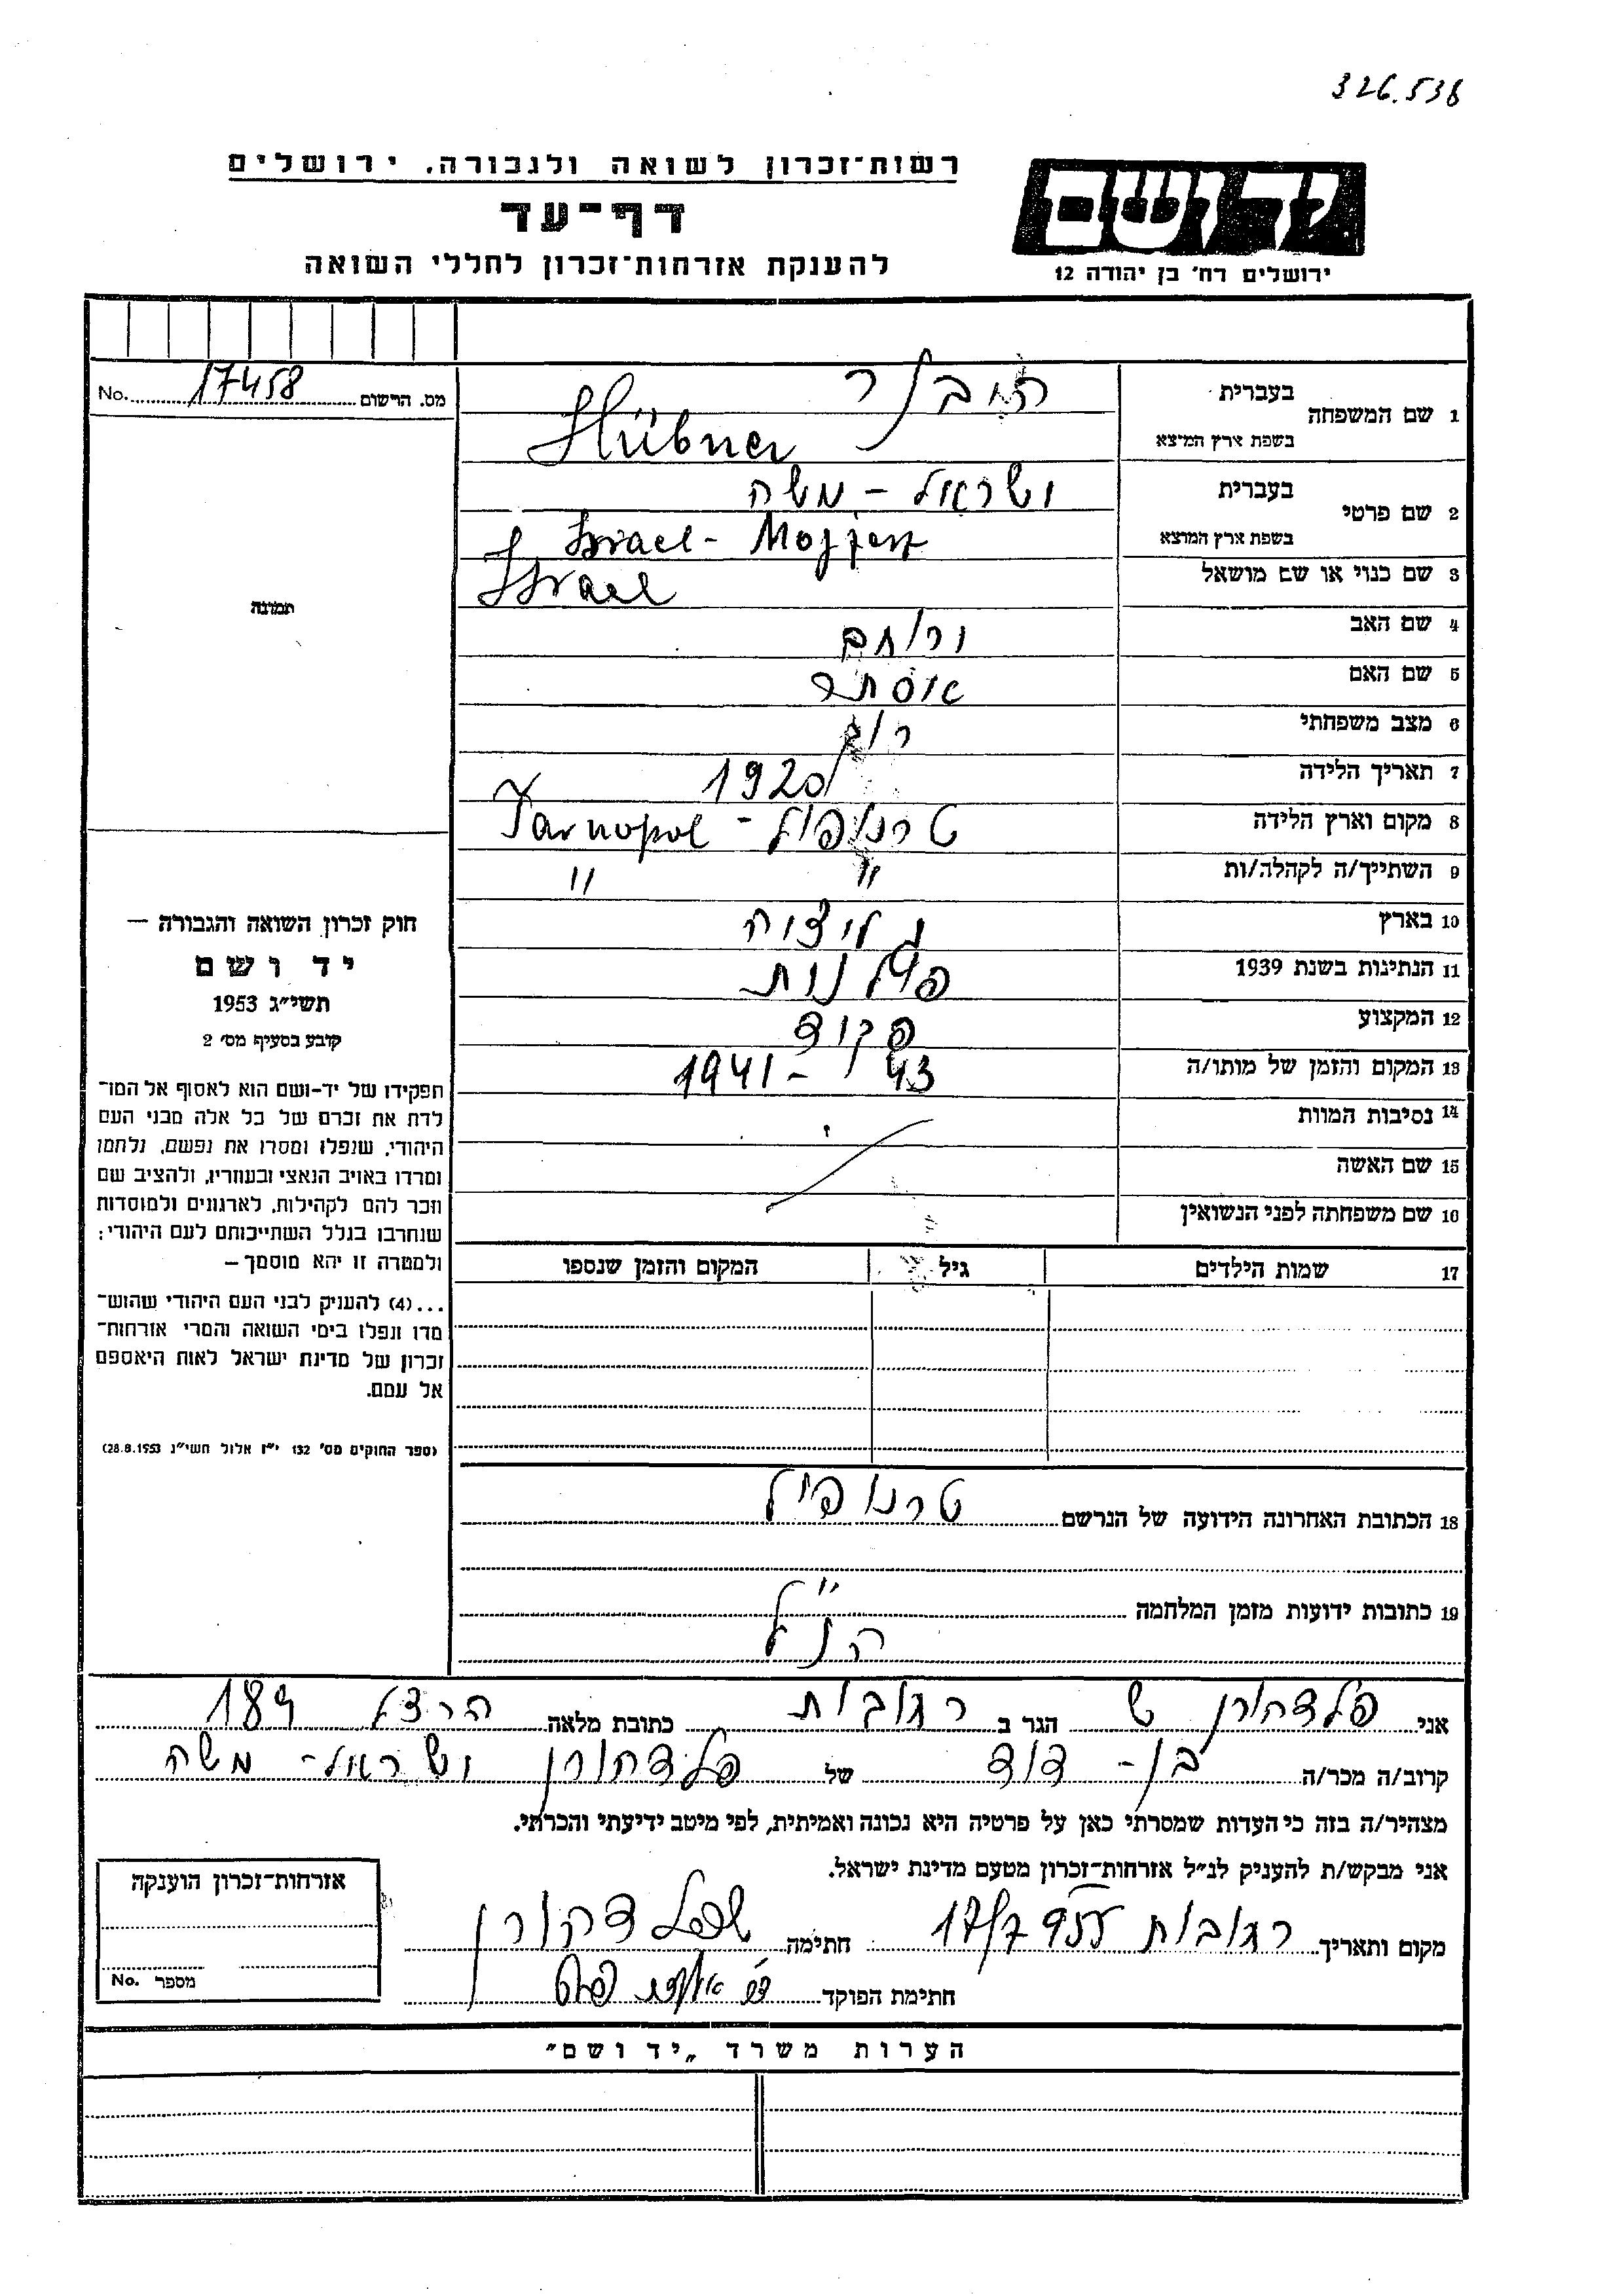 326.538
רשות־זכרון לשואה ולגבורה, ירושלים
יד ושם
דף־עד
ירושלים רח' בן יהודה 12
להענקת אזרחות־זכרון לחללי השואה
מס. הרשום 17458 No.
1 שם המשפחה
בעברית היבנר
בשפת ארץ המוצא Hübner
2 שם פרטי
בעברית ישראל - משה
בשפת ארץ המוצא Israel-
3 שם כנוי או שם מושאל Israel
4 שם האב ירוחם
5 שם האם אסתר
6 מצב משפחתי רווק
7 תאריך הלידה 1920
8 מקום וארץ הלידה טרנופול - Tarnopol
9 השתייך/ה לקהלה/ות " "
10 בארץ גליציה
11 הנתינות בשנת 1939 פולנית
12 המקצוע פקיד
13 המקום והזמן של מותו/ה 1941 - 43
14 נסיבות המוות
15 שם האשה
16 שם משפחתה לפני הנשואין
17 שמות הילדים גיל המקום והזמן שנספו
18 הכתובת האחרונה הידועה של הנרשם טרנופול
19 כתובות ידועות מזמן המלחמה
הנ"ל
תמונה
חוק זכרון השואה והגבורה —
יד ושם
תשי"ג 1953
קובע בסעיף מס' 2
תפקידו של יד-ושם הוא לאסוף אל המו־
לדת את זכרם של כל אלה מבני העם
היהודי, שנפלו ומסרו את נפשם, נלחמו
ומרדו באויב הנאצי ובעוזריו, ולהציב שם
וזכר להם לקהילות, לארגונים ולמוסדות
שנחרבו בגלל השתייכותם לעם היהודי;
ולמטרה זו יהא מוסמך —
...(4) להעניק לבני העם היהודי שהוש־
מדו ונפלו בימי השואה והמרי אזרחות־
זכרון של מדינת ישראל לאות היאספם
אל עמם.
(ספר החוקים מס' 132 י"ז אלול תשי"ג 28.8.1953)
אני פלדהורן ש הגר ב רחובות כתובת מלאה הרצל 189
קרוב/ה מכר/ה בן - דוד של פלדהורן ישראל - משה
מצהיר/ה בזה כי העדות שמסרתי כאן על פרטיה היא נכונה ואמיתית, לפי מיטב ידיעתי והכרתי.
אני מבקש/ת להעניק לנ"ל אזרחות־זכרון מטעם מדינת ישראל.
מקום ותאריך רחובות 17/7 955 חתימה ש פלדהורן
חתימת הפוקד
אזרחות־זכרון הוענקה
מספר No.
הערות משרד „יד ושם"